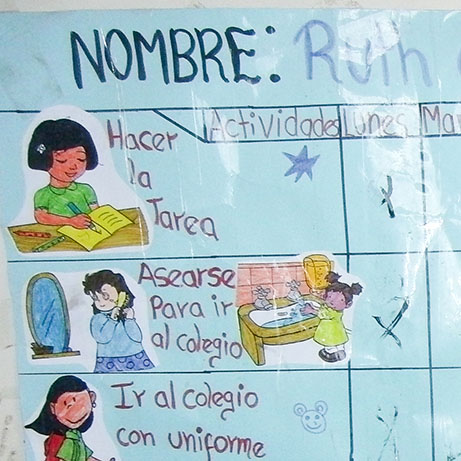 NOMBRE: Ruth
Actividades Lunes Mar
Hacer
la
Tarea
Asearse
Para ir
al colegio
Ir al colegio
con uniforme